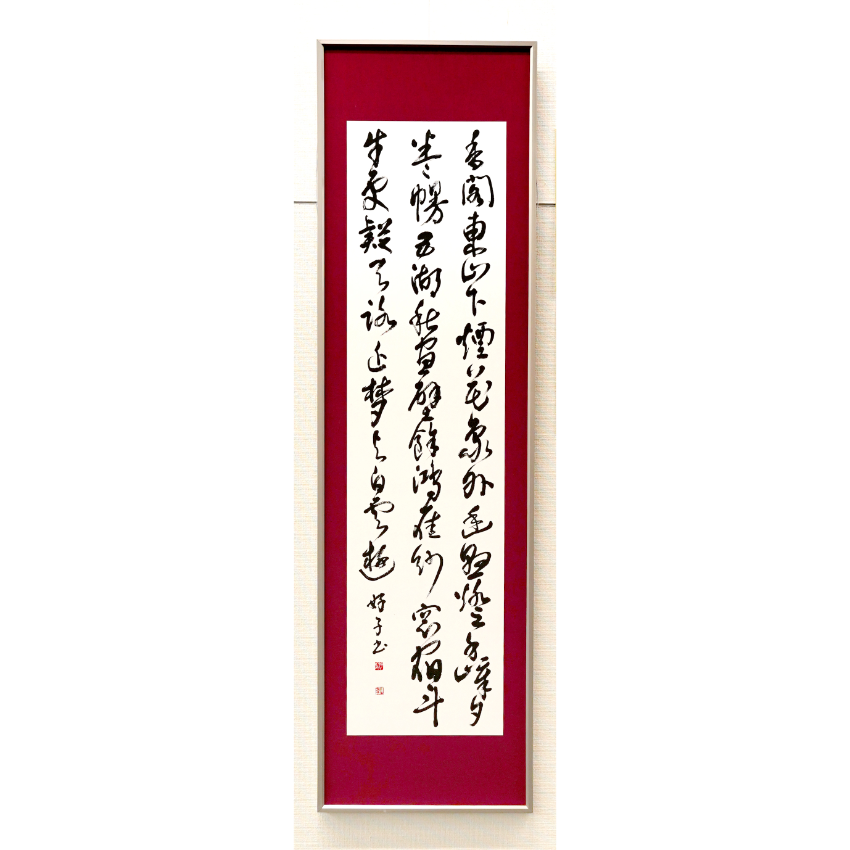 香閣東山下煙花象外幽懸燈千嶂夕
卷幔五湖秋畫壁餘鴻雁紗窗宿斗
牛更疑天路近夢与白雲遊 好子書